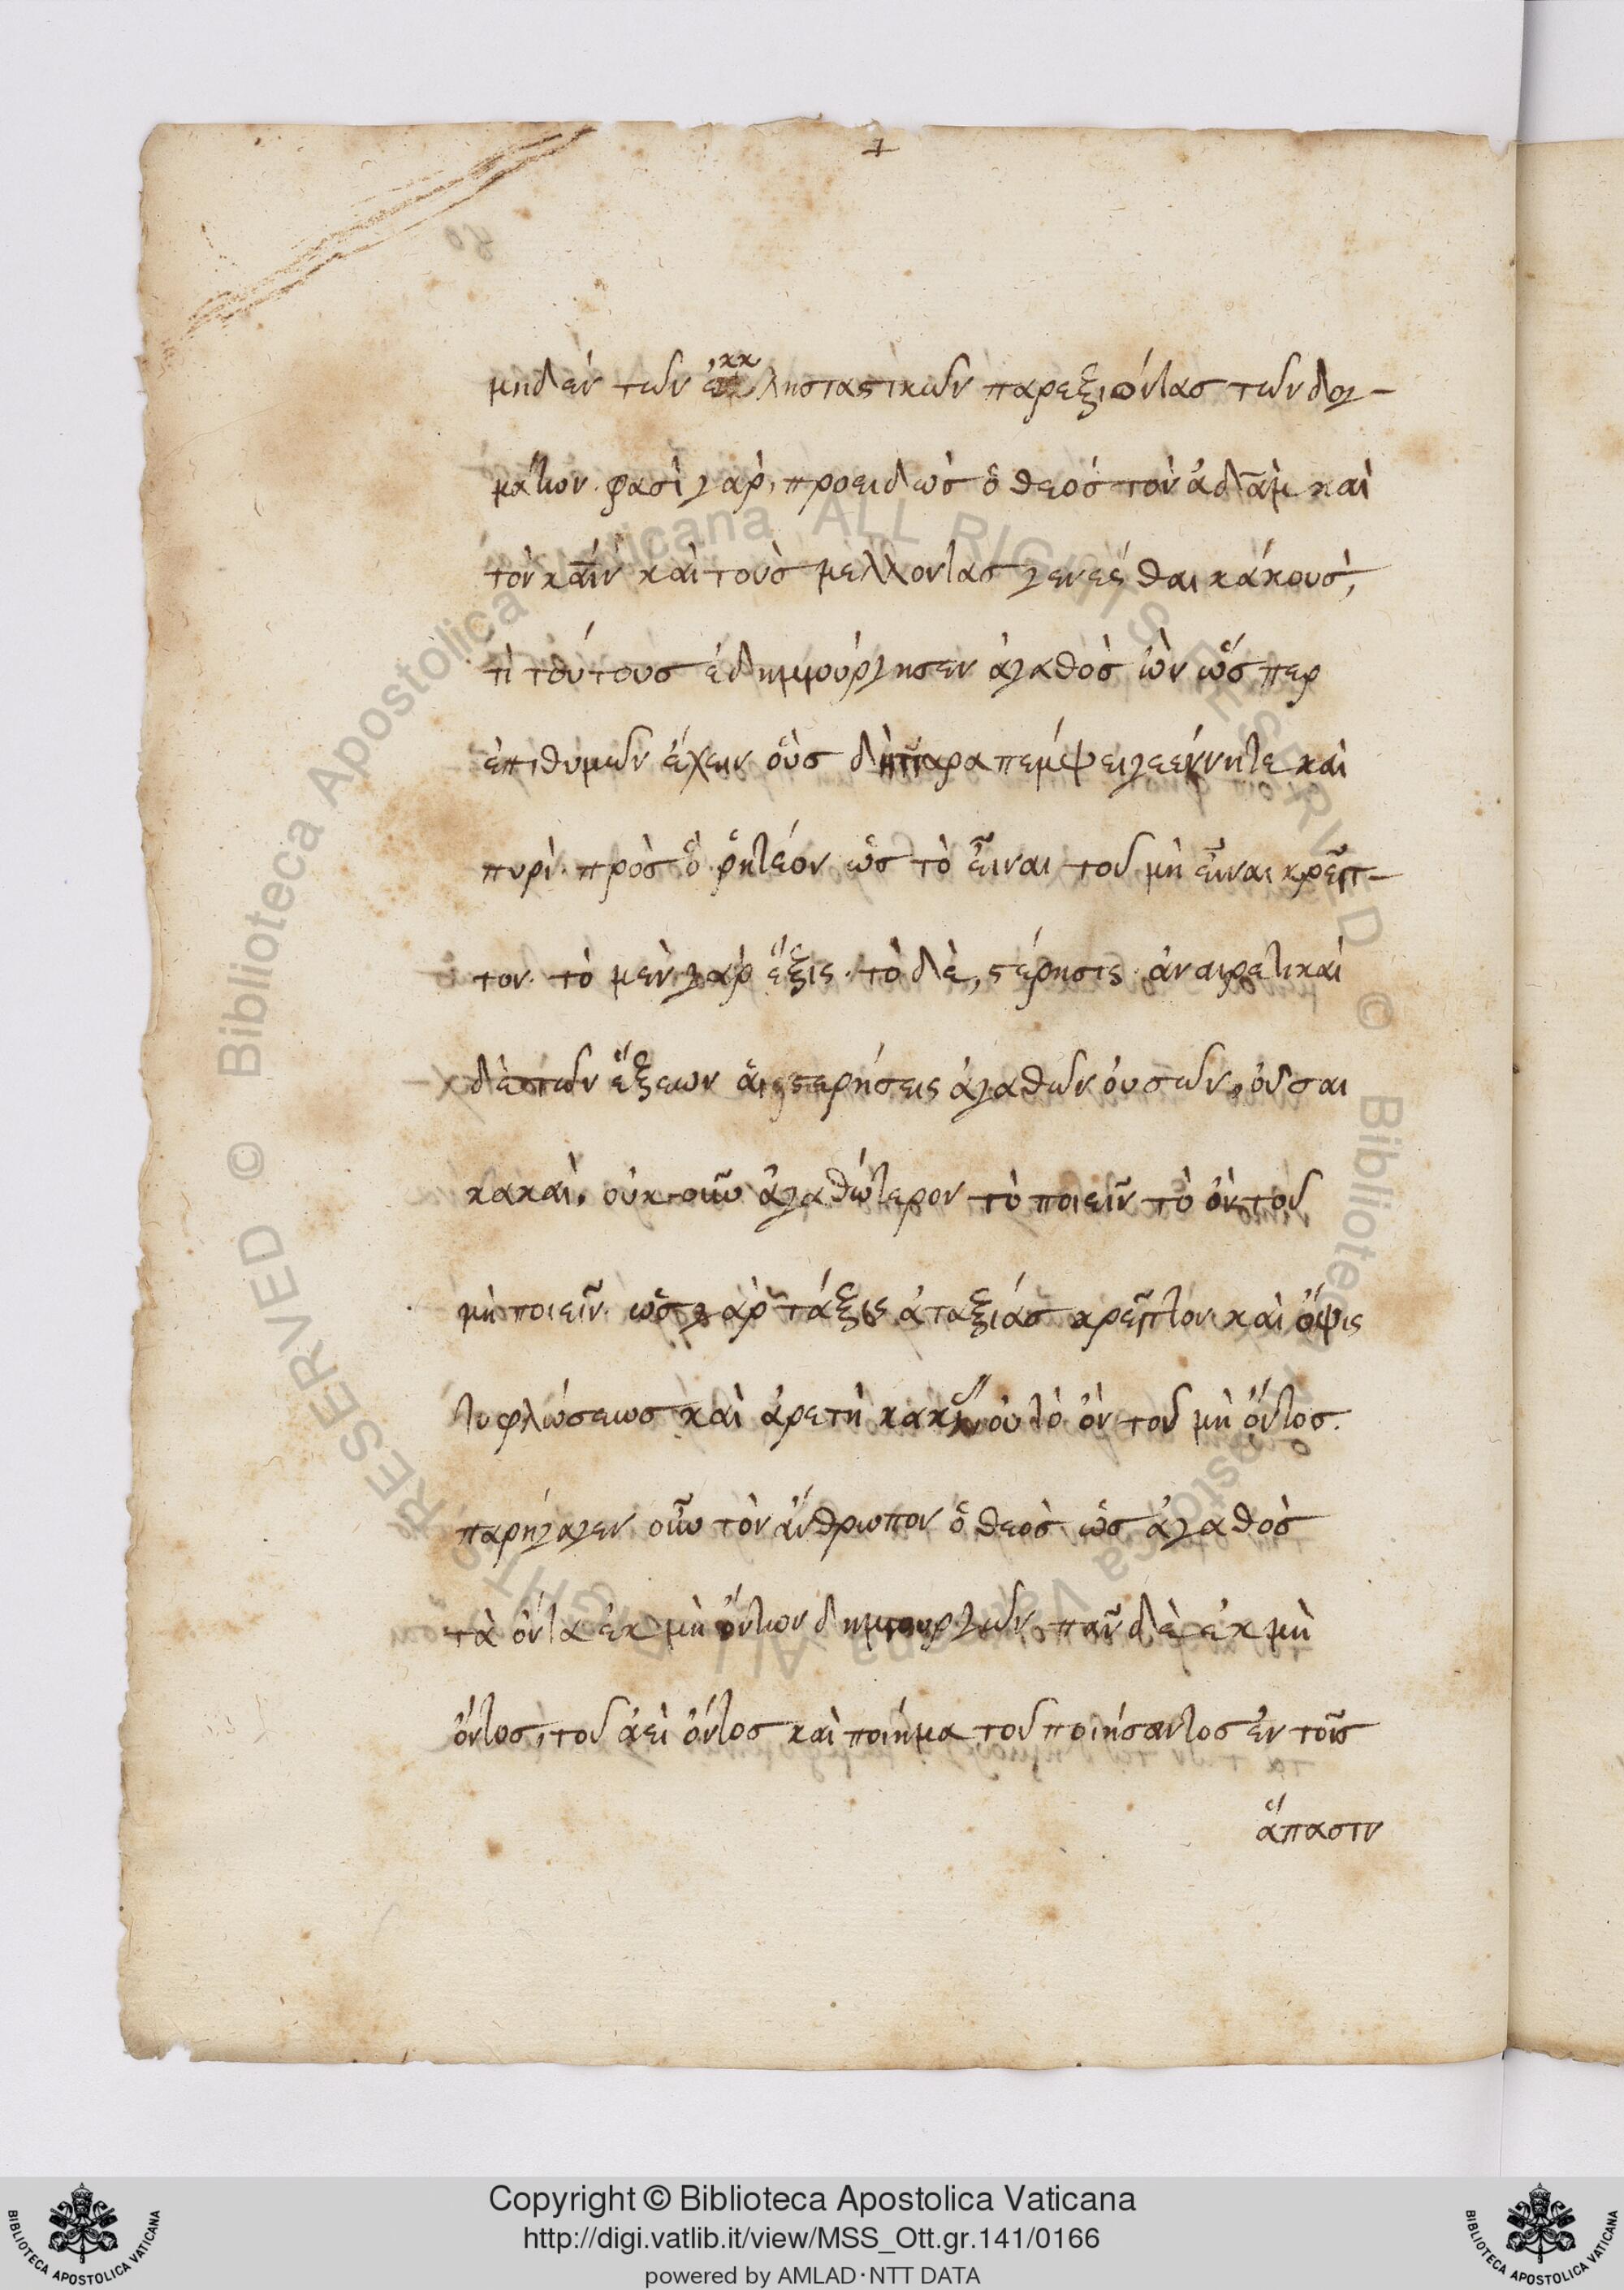 +
μηδὲν τῶν ἐκκλησιαστικῶν παρεξιόντας τῶν δογ-
μάτων. φασὶ γὰρ, προειδὼς ὁ θεός τὸν ἀδὰμ καὶ
τὸν κάϊν καὶ τοὺσ μελλοντας γενέσθαι κάκουσ,
τὶ τούτουσ ἐδημιούργησεν ἀγαθὸσ ὢν ὥσπερ
ἐπιθυμῶν ἔχειν οὓσ δὴ παραπέμψει γεέννητε καὶ
πυρὶ. πρὸσ ὃ ῥητέον ὡσ τὸ εἶναι τοῦ μὴ εἶναι κρεῖτ-
τον. τὸ μὲν γὰρ ἕξις. τὸ δὲ, στέρησις. ἀναιρετικαὶ
δὲ τῶν ἕξεων αἱ στερήσεις ἀγαθῶν ὀυσῶν, οὖσαι
κακαὶ. οὐκοῦν ἀγαθώτερον τὸ ποιεῖν τὸ ὂν τοῦ
μὴ ποιεῖν. ὡσ γὰρ τάξις ἀταξιάσ κρεῖττον καὶ ὄψις
τυφλώσεωσ καὶ ἀρετὴ οὐ τὸ ὂν τοῦ μὴ ὄντοσ.
παρήγαγεν οὖν τὸν ἄνθρωπον ὁ θεὸσ ὡσ ἀγαθὸσ
τὰ ὄντα ἐκ μὴ ὄντων δημιουργῶν. πᾶν δὲ ἐκ μὴ
ὄντοσ, τοῦ ἀεὶ ὄντοσ καὶ ποιήμα τοῦ ποιήσαντοσ ἐν τοῖσ
ἅπασιν
© Biblioteca Apostolica Vaticana ALL RIGHTS RESERVED
© Biblioteca Apostolica Vaticana ALL RIGHTS RESERVED
Copyright © Biblioteca Apostolica Vaticana
http://digi.vatlib.it/view/MSS_Ott.gr.141/0166
powered by AMLAD·NTT DATA
BIBLIOTECA APOSTOLICA VATICANA
BIBLIOTECA APOSTOLICA VATICANA